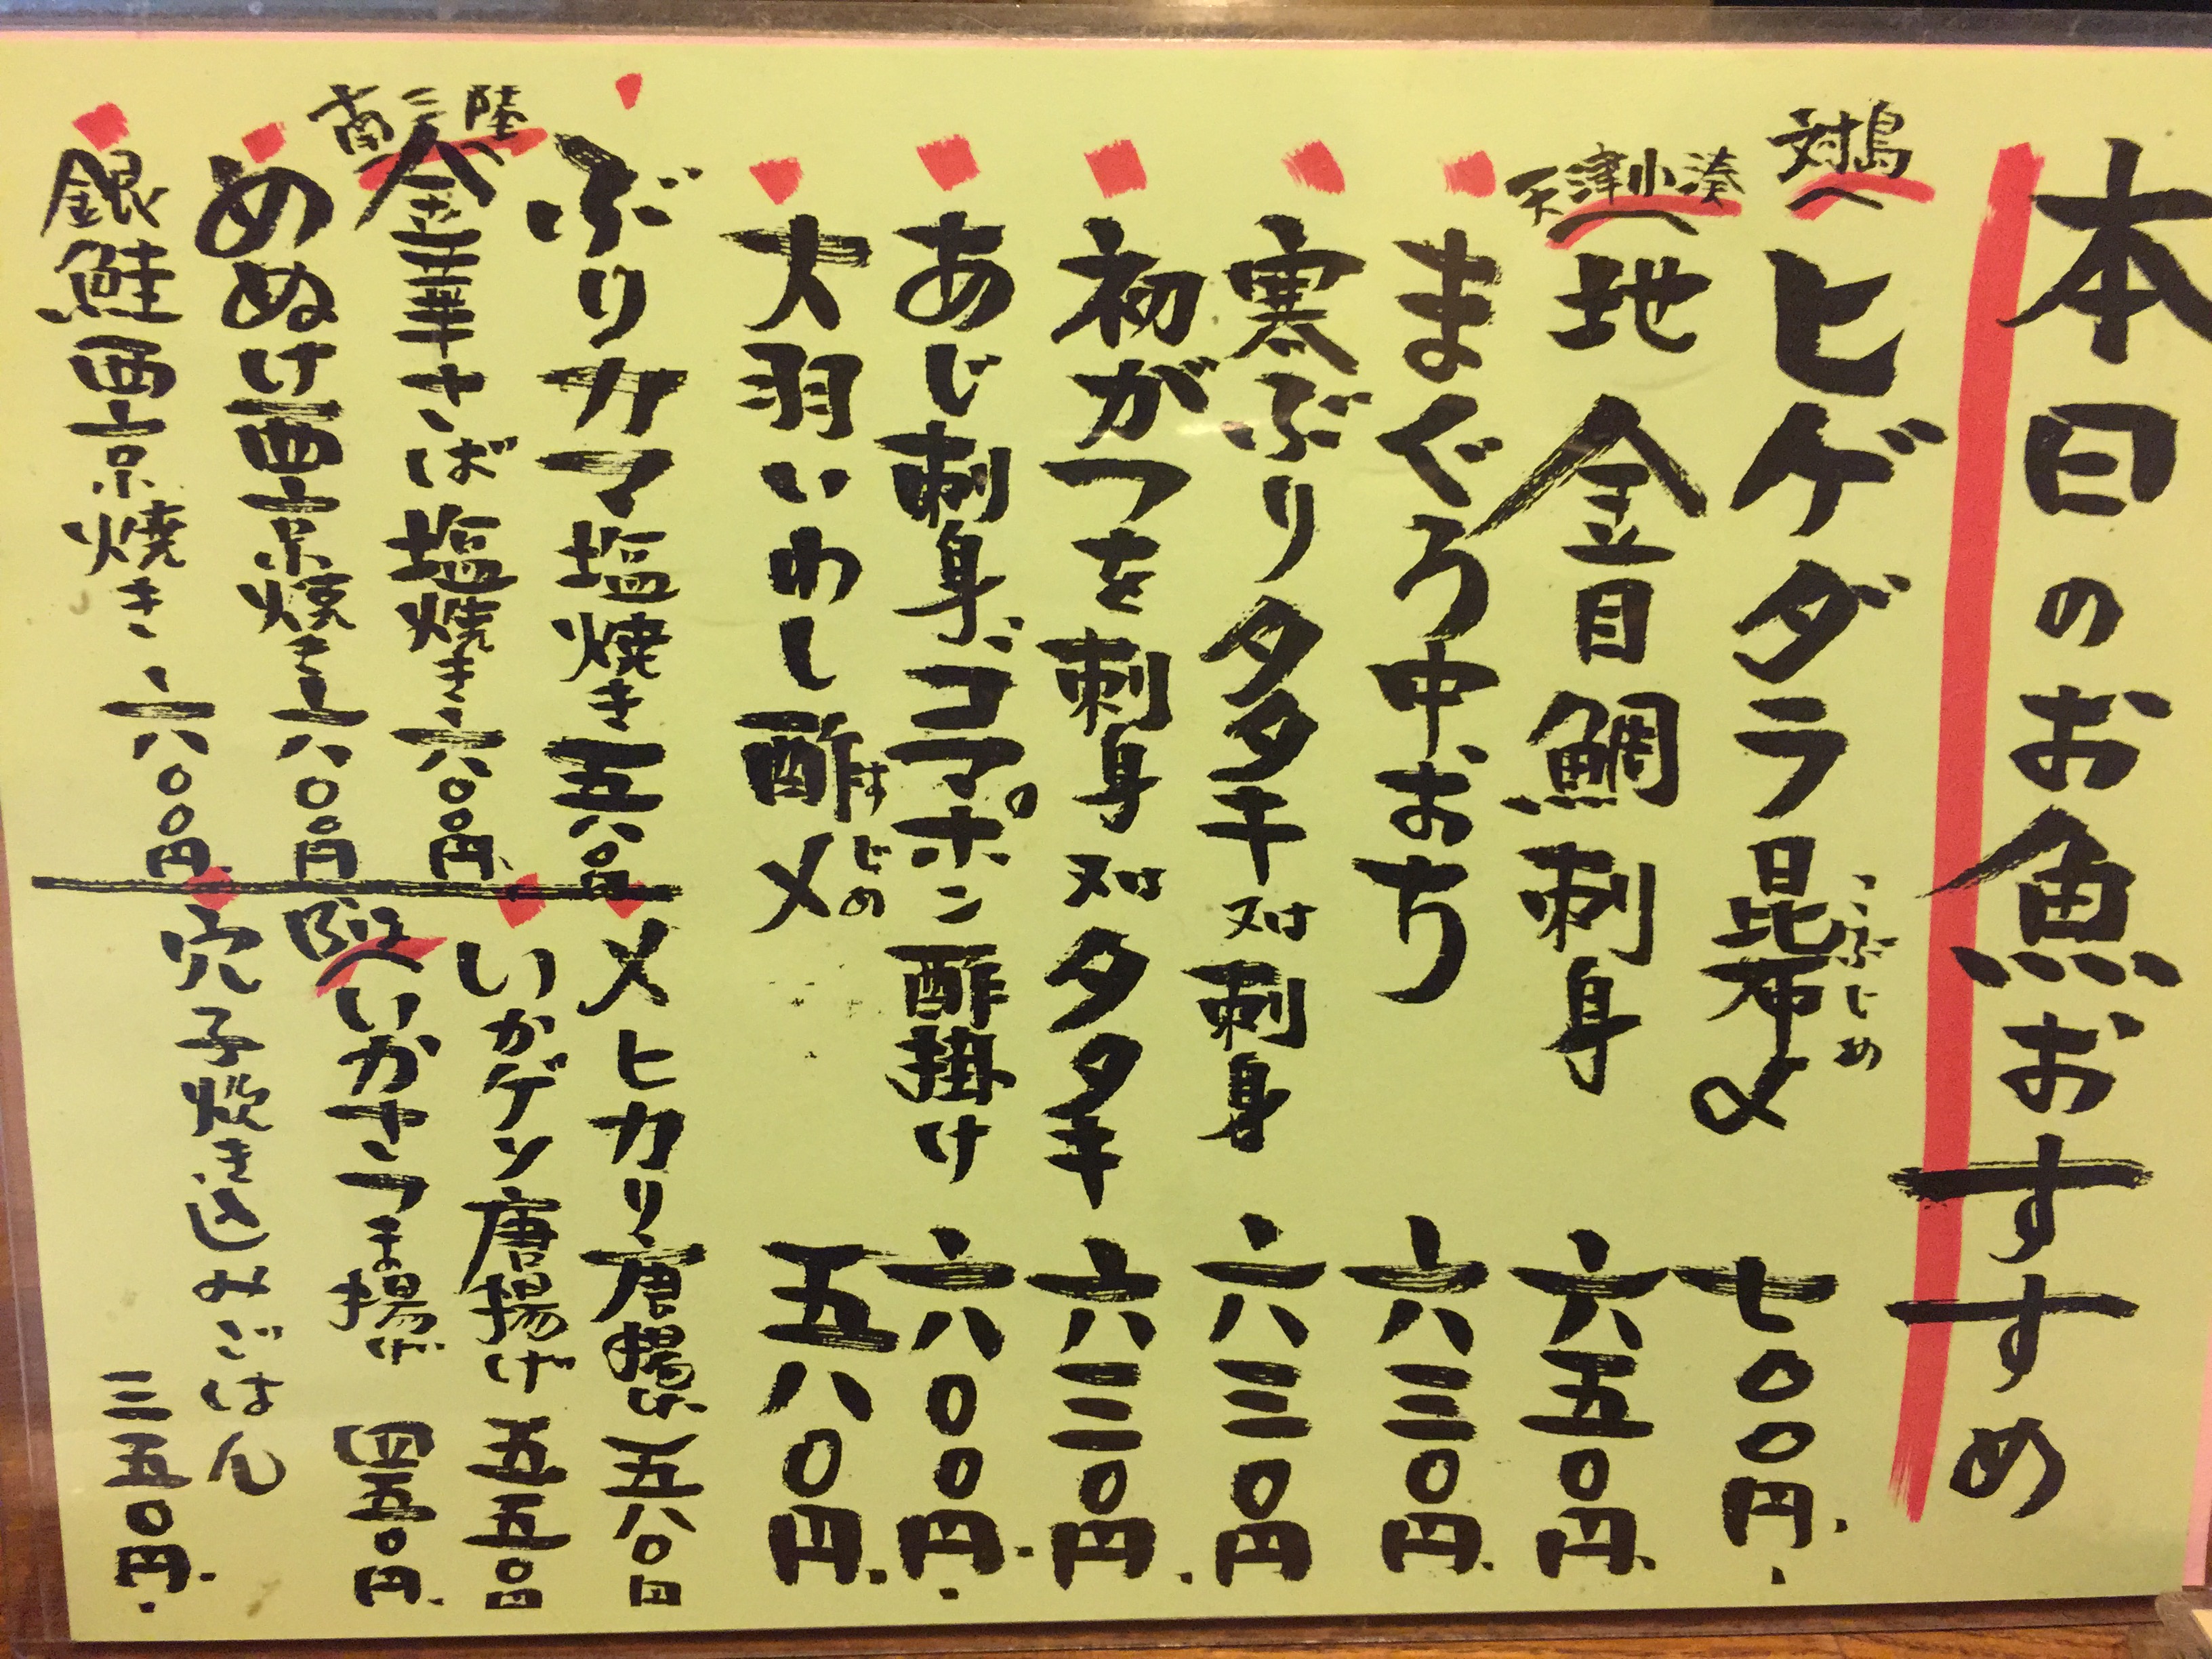 本日のお魚おすすめ
対島
ヒゲダラ昆布〆 七〇〇円
こぶじめ
天津小湊
地金目鯛刺身 六五〇円
まぐろ中おち 六三〇円
寒ぶりタタキ又は刺身 六三〇円
初がつを刺身又はタタキ 六三〇円
あじ刺身、ゴマポン酢掛け 六〇〇円
大羽いわし酢〆 五八〇円
すじめ
ぶりカマ塩焼き 五八〇円
南三陸
金華さば塩焼き 六〇〇円
めぬけ西京焼き 六八〇円
銀鮭西京焼き 六〇〇円
メヒカリ唐揚げ 五八〇円
いかゲソ唐揚げ 五五〇円
いかさつま揚げ 四五〇円
穴子炊き込みごはん 三五〇円